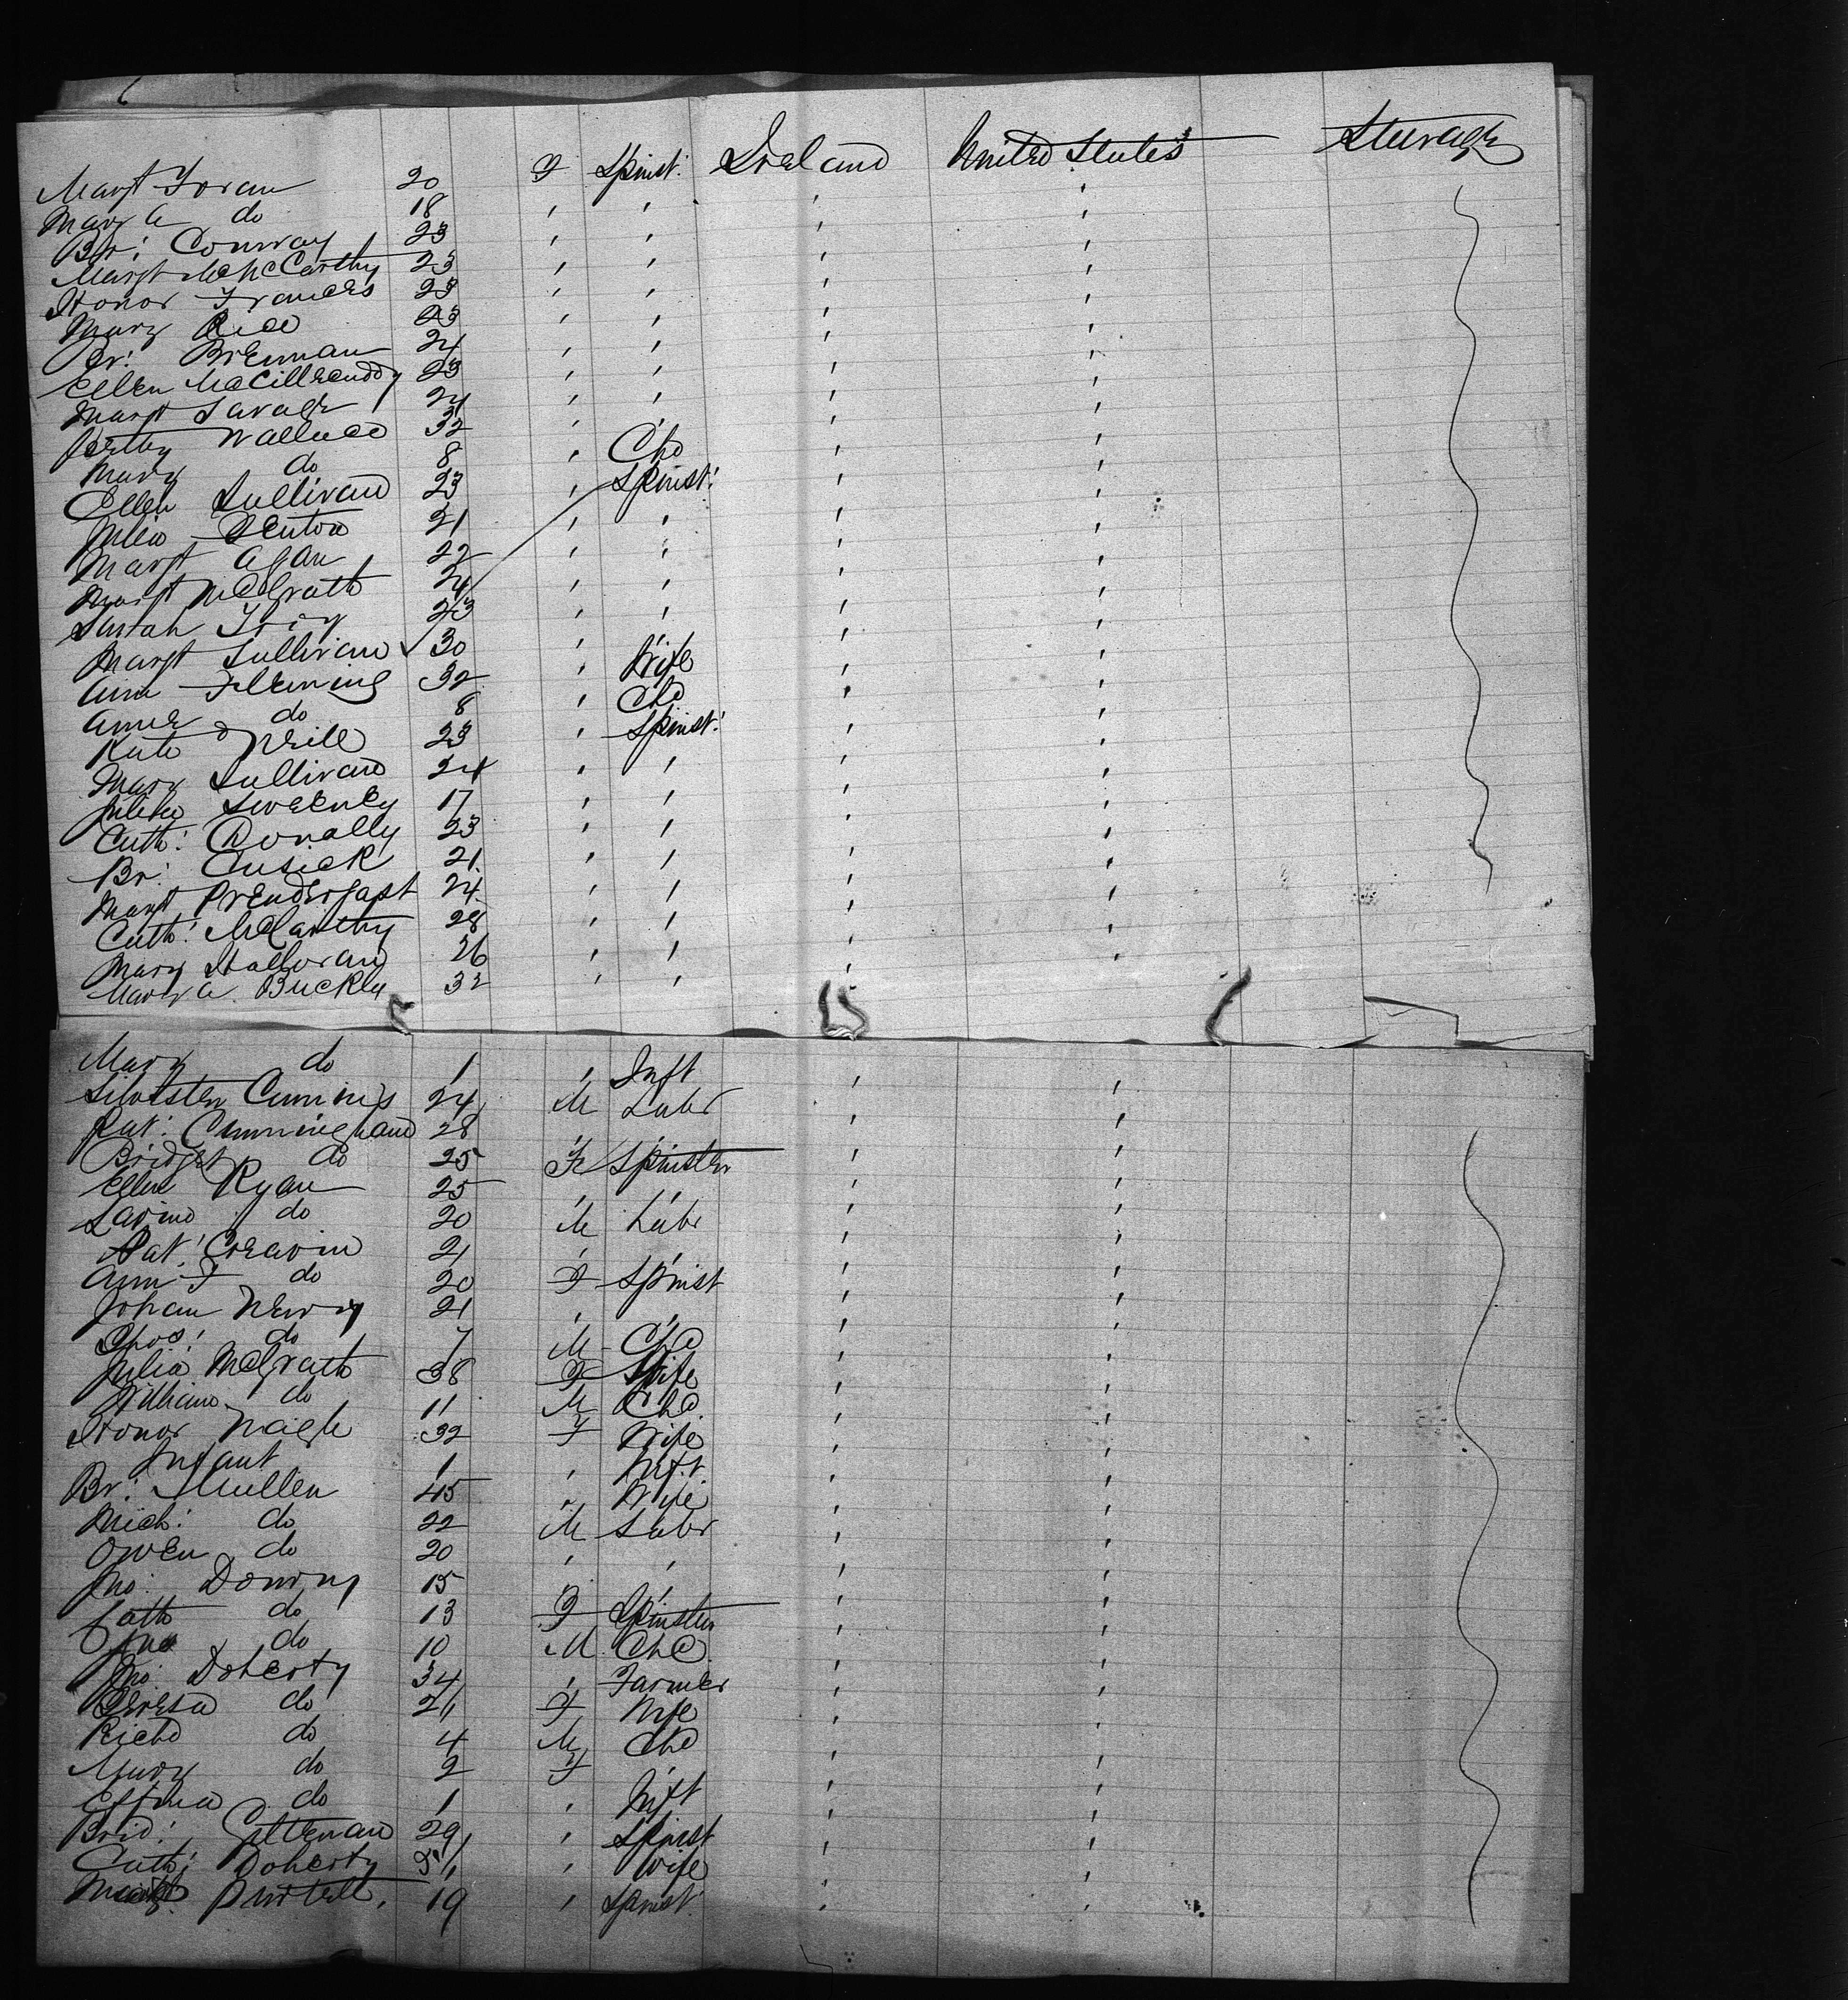 Margt Foran 20 F Spinst: Ireland United States Steerage
Mary A do 18 ' '
Br: Conway 23 ' '
Margt McCarthy 23 ' '
Honor Frances 23 ' '
Mary Rice 23 ' '
Br: Brennan 24 ' '
Ellen McGillicuddy 23 ' '
Margt Savage 24 ' '
Wallace 32 ' '
Mary do 8 ' Chd
Ellen Sullivan 23 ' Spinst:
Julia 21 ' '
Margt Agan 22 ' '
Margt McGrath 24 ' '
Sarah 23 ' '
Margt Sullivan 30 ' '
Ann Fleming 32 ' Wife
Anne do 8 ' Chd
Kate O Neill 23 ' Spinst:
Mary Sullivan 24 ' '
Julia Sweeney 17 ' '
Cath: Conolly 23 ' '
Br: Cusick 21 ' '
Margt Prendergast 24 ' '
Cath: McCarthy 28 ' '
Mary Halloran 26 ' '
Mary A. Buckly 32 ' '
Mary do 1 ' Inft
Silvester Cummins 24 M Labr
Pat: Cunningham 28 ' '
Bridget do 25 F Spinster
Ellen Ryan 25 ' '
do 20 M Labr
Pat: Creavin 21 ' '
Ann F do 20 F Spinst
Johan 21 ' '
Thos: do 7 M Chd
Julia McGrath 38 F Wife
William do 11 M Chd
Honor Nagle 32 F Wife
Infant 1 ' Inft.
Br: Mullen 45 ' Wife
Mich: do 22 M Labr
Owen do 20 ' '
Jno: Downy 15 ' '
Cath do 13 F Spinster
do 10 M Chd
Jno: Doherty 34 ' Farmer
Teresa do 21 F Wife
Richd do 4 M Chd
Mary do 2 F '
do 1 ' Inft
Brid: 29 ' Spinst
Cath: Doherty ' Wife
Purtell. 19 ' Spinst: